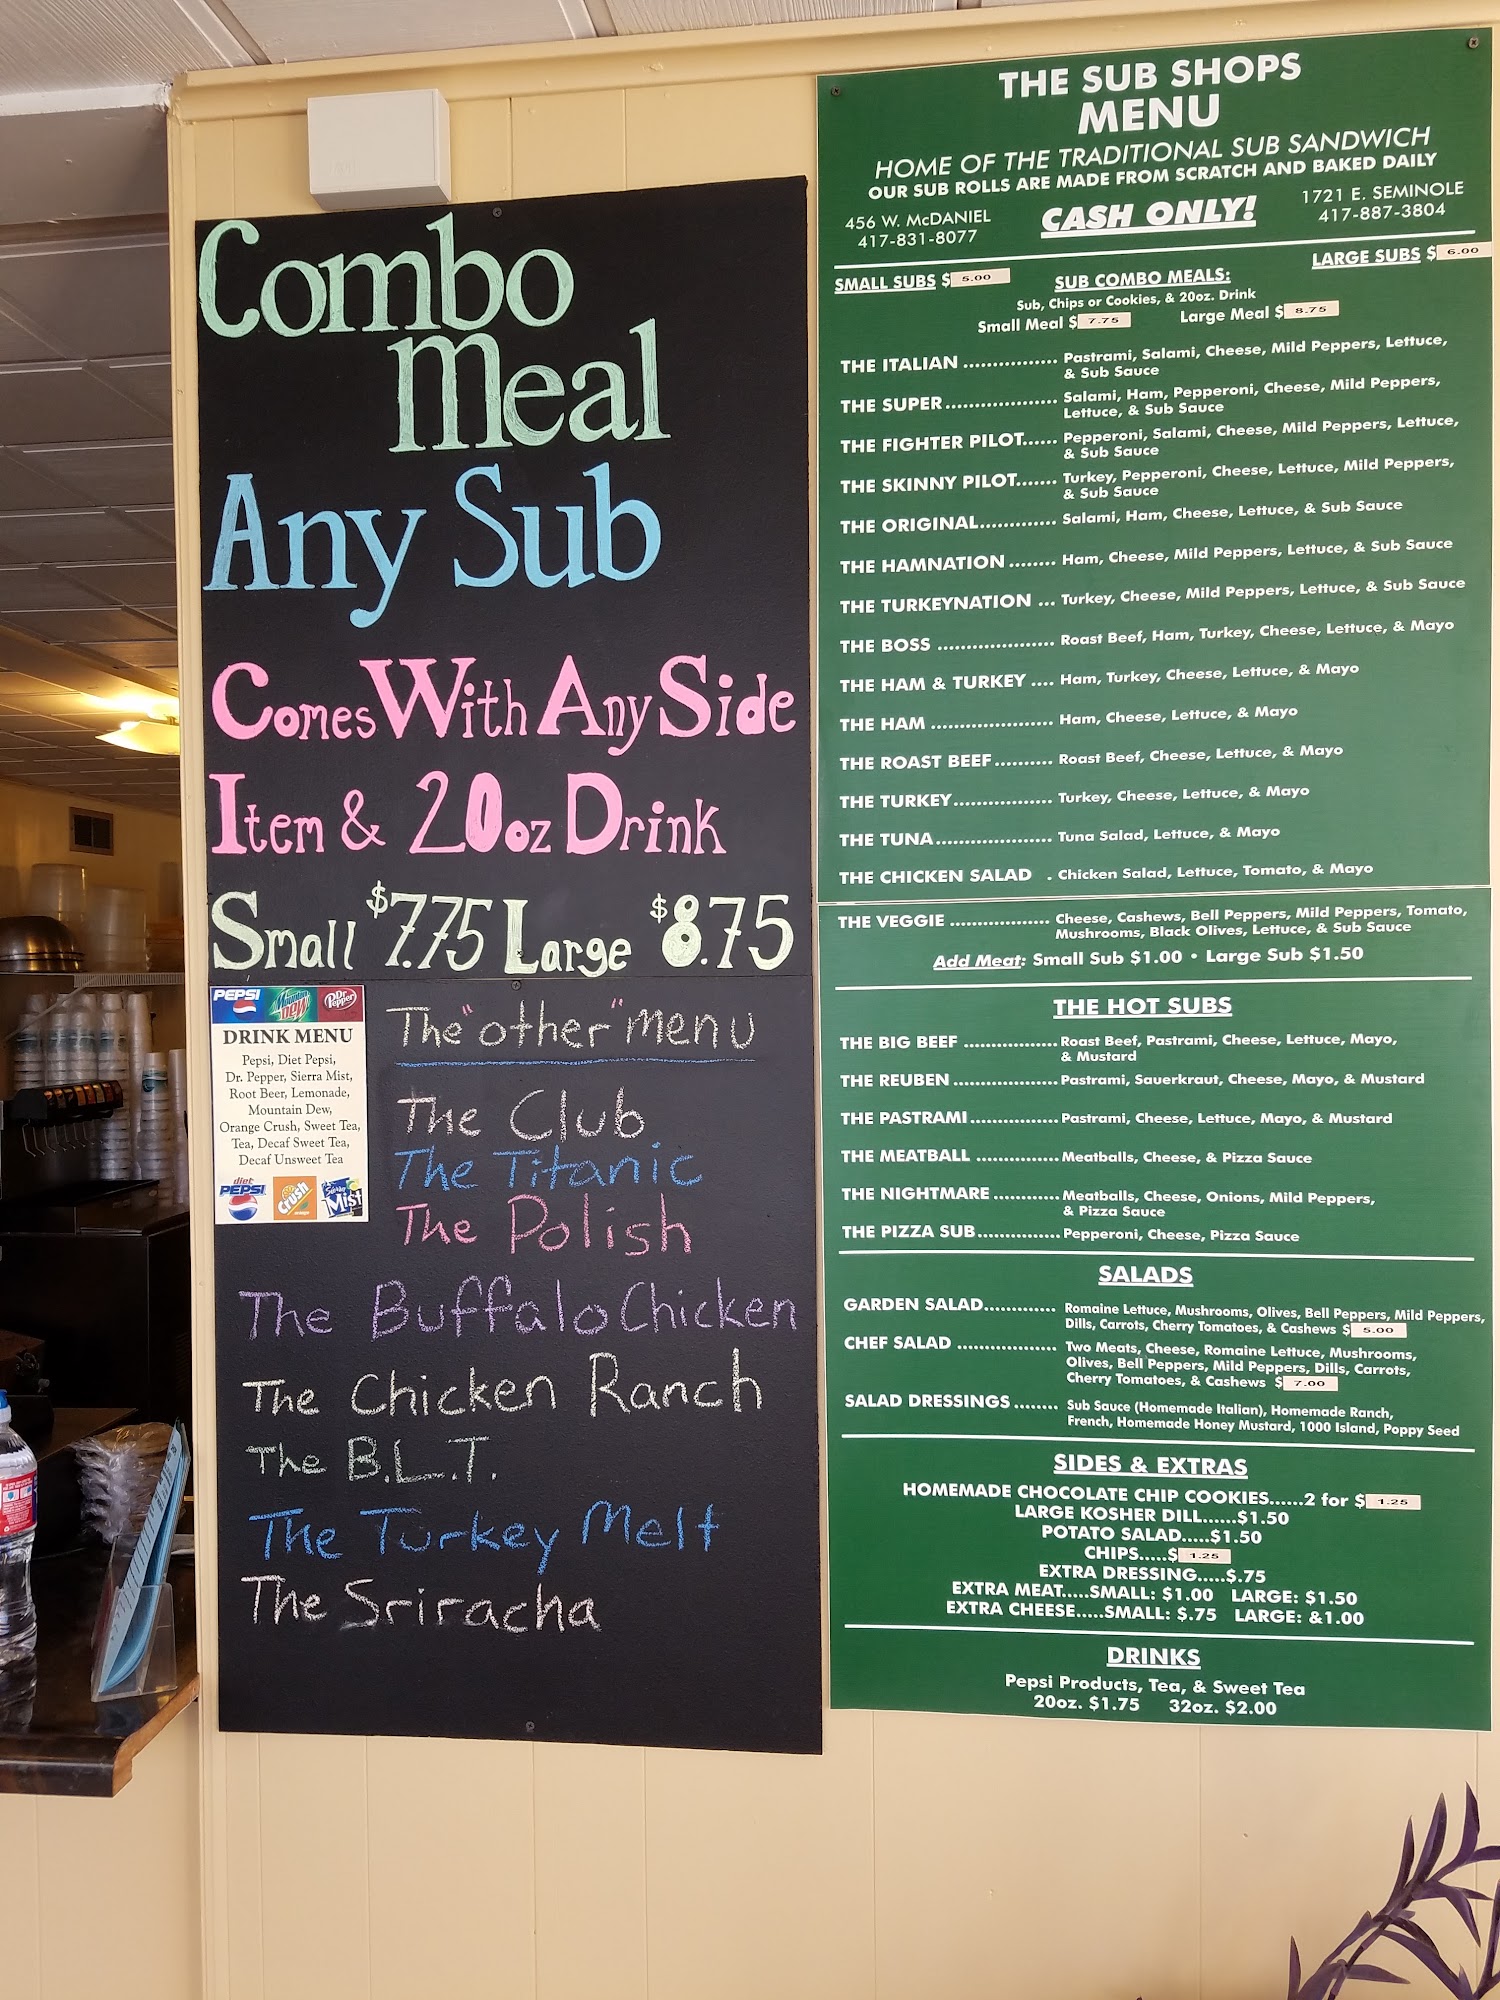 Combo
Meal
Any Sub
Comes With Any Side
Item & 20oz Drink
Small $7.75 Large $8.75
PEPSI Mountain Dew Dr Pepper
DRINK MENU
Pepsi, Diet Pepsi,
Dr. Pepper, Sierra Mist,
Root Beer, Lemonade,
Mountain Dew,
Orange Crush, Sweet Tea,
Tea, Decaf Sweet Tea,
Decaf Unsweet Tea
diet PEPSI Crush Sierra Mist
The "other" menu
The Club
The Titanic
The Polish
The Buffalo Chicken
The Chicken Ranch
The B.L.T.
The Turkey Melt
The Sriracha
THE SUB SHOPS
MENU
HOME OF THE TRADITIONAL SUB SANDWICH
OUR SUB ROLLS ARE MADE FROM SCRATCH AND BAKED DAILY
456 W. McDANIEL
417-831-8077
CASH ONLY!
1721 E. SEMINOLE
417-887-3804
SMALL SUBS $ 5.00
LARGE SUBS $ 6.00
SUB COMBO MEALS:
Sub, Chips or Cookies, & 20oz. Drink
Small Meal $ 7.75 Large Meal $ 8.75
THE ITALIAN ................ Pastrami, Salami, Cheese, Mild Peppers, Lettuce,
& Sub Sauce
THE SUPER................... Salami, Ham, Pepperoni, Cheese, Mild Peppers,
Lettuce, & Sub Sauce
THE FIGHTER PILOT...... Pepperoni, Salami, Cheese, Mild Peppers, Lettuce,
& Sub Sauce
THE SKINNY PILOT....... Turkey, Pepperoni, Cheese, Lettuce, Mild Peppers,
& Sub Sauce
THE ORIGINAL............. Salami, Ham, Cheese, Lettuce, & Sub Sauce
THE HAMNATION ........ Ham, Cheese, Mild Peppers, Lettuce, & Sub Sauce
THE TURKEYNATION ... Turkey, Cheese, Mild Peppers, Lettuce, & Sub Sauce
THE BOSS .................... Roast Beef, Ham, Turkey, Cheese, Lettuce, & Mayo
THE HAM & TURKEY .... Ham, Turkey, Cheese, Lettuce, & Mayo
THE HAM ..................... Ham, Cheese, Lettuce, & Mayo
THE ROAST BEEF.......... Roast Beef, Cheese, Lettuce, & Mayo
THE TURKEY................. Turkey, Cheese, Lettuce, & Mayo
THE TUNA.................... Tuna Salad, Lettuce, & Mayo
THE CHICKEN SALAD . Chicken Salad, Lettuce, Tomato, & Mayo
THE VEGGIE ................. Cheese, Cashews, Bell Peppers, Mild Peppers, Tomato,
Mushrooms, Black Olives, Lettuce, & Sub Sauce
Add Meat: Small Sub $1.00 • Large Sub $1.50
THE HOT SUBS
THE BIG BEEF ..................Roast Beef, Pastrami, Cheese, Lettuce, Mayo,
& Mustard
THE REUBEN ....................Pastrami, Sauerkraut, Cheese, Mayo, & Mustard
THE PASTRAMI.................Pastrami, Cheese, Lettuce, Mayo, & Mustard
THE MEATBALL ................Meatballs, Cheese, & Pizza Sauce
THE NIGHTMARE .............Meatballs, Cheese, Onions, Mild Peppers,
& Pizza Sauce
THE PIZZA SUB................Pepperoni, Cheese, Pizza Sauce
SALADS
GARDEN SALAD............. Romaine Lettuce, Mushrooms, Olives, Bell Peppers, Mild Peppers,
Dills, Carrots, Cherry Tomatoes, & Cashews $ 5.00
CHEF SALAD .................. Two Meats, Cheese, Romaine Lettuce, Mushrooms,
Olives, Bell Peppers, Mild Peppers, Dills, Carrots,
Cherry Tomatoes, & Cashews $ 7.00
SALAD DRESSINGS ........ Sub Sauce (Homemade Italian), Homemade Ranch,
French, Homemade Honey Mustard, 1000 Island, Poppy Seed
SIDES & EXTRAS
HOMEMADE CHOCOLATE CHIP COOKIES......2 for $ 1.25
LARGE KOSHER DILL......$1.50
POTATO SALAD.....$1.50
CHIPS.....$ 1.25
EXTRA DRESSING.....$.75
EXTRA MEAT.....SMALL: $1.00 LARGE: $1.50
EXTRA CHEESE.....SMALL: $.75 LARGE: &1.00
DRINKS
Pepsi Products, Tea, & Sweet Tea
20oz. $1.75 32oz. $2.00